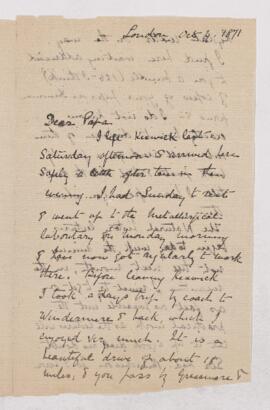 London Oct 4, 1871
Dear Papa
I left Keswick last
Saturday afternoon & arrived here
safely a little after ten in the
evening. I had Sunday to rest
& went up to the Metallurgical
laboratory on Monday morning
& have now got regularly to work
there. Before leaving Keswick
I took a days trip by coach to
Windermere & back, which I
enjoyed very much. It is a
beautiful drive of about 18
miles, & you pass by Grasmere &